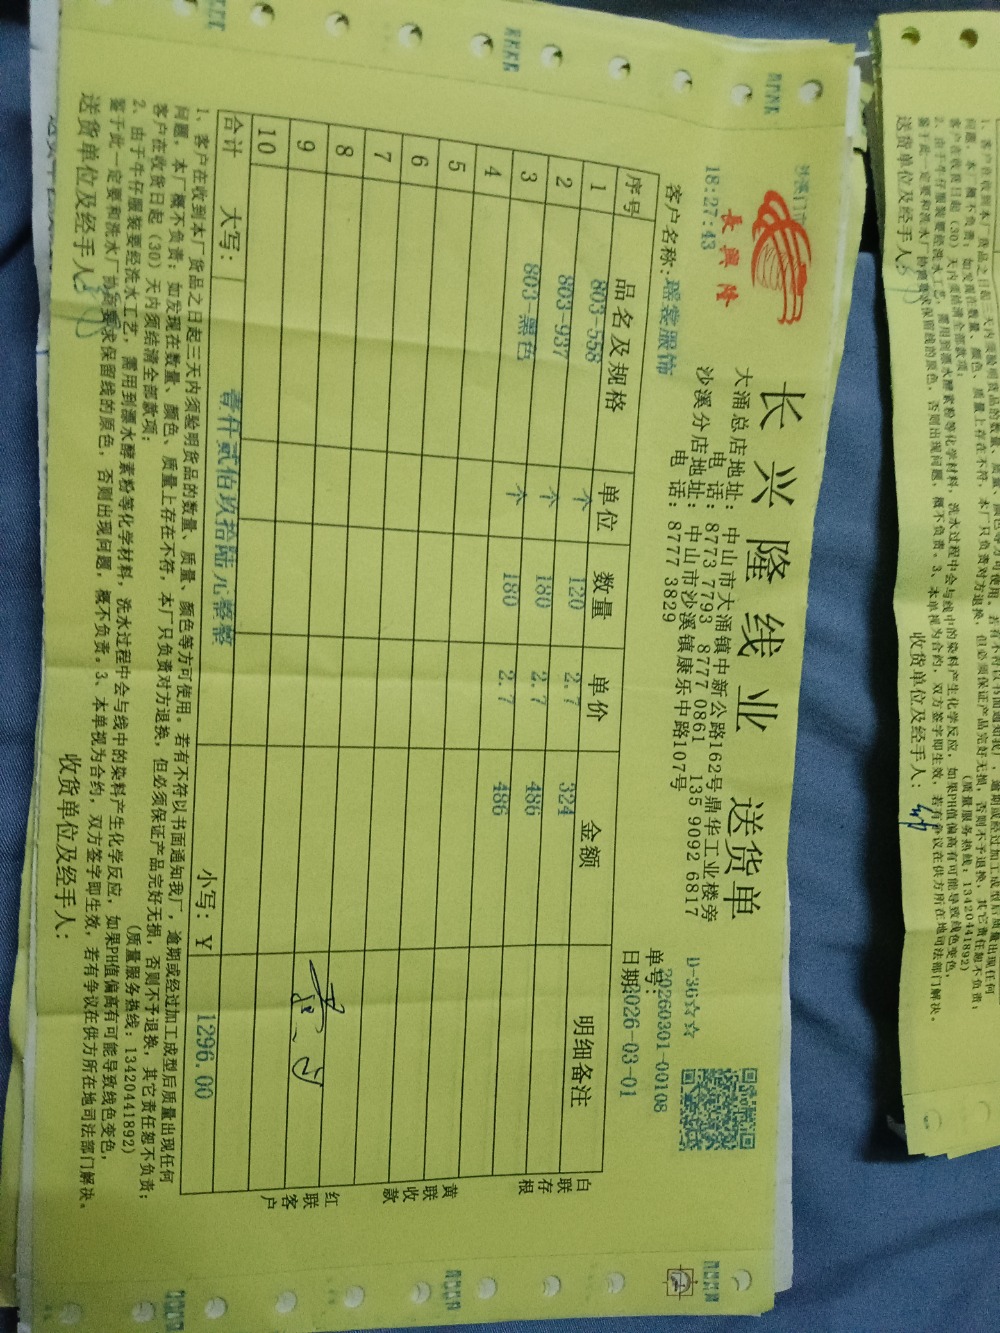 沙溪门市
18:27:43
長興隆
长兴隆线业 送货单
大涌总店地址：中山市大涌镇中新公路162号鼎华工业楼旁
电 话：8773 7793 8777 0861 135 9092 6817
沙溪分店地址：中山市沙溪镇康乐中路107号
电 话：8777 3829
D-36☆☆
单号：20260301-00108
日期2026-03-01
客户名称：瑶裳服饰
序号 品名及规格 单位 数量 单价 金额 明细备注
1 803-558 个 120 2.7 324
2 803-937 个 180 2.7 486
3 803-黑色 个 180 2.7 486
4
5
6
7
8
9
10
合计 大写： 壹仟贰佰玖拾陆元整整 小写：￥ 1296.00
白联存根
黄联收款
红联客户
1、客户在收到本厂货品之日起三天内须验明货品的数量、质量、颜色等方可使用。若有不符以书面通知我厂，逾期或经过加工成型后质量出现任何
问题，本厂概不负责；如发现在数量、颜色、质量上存在不符，本厂只负责对方退换，但必须保证产品完好无损，否则不予退换，其它责任恕不负责；
客户在收货日起（30）天内须结清全部款项；
(质量服务热线：13420441892)
2、由于牛仔服装要经洗水工艺，需用到漂水酵素粉等化学材料，洗水过程中会与线中的染料产生化学反应，如果PH值偏高有可能导致线色变色，
鉴于此一定要和洗水厂协商要求保留线的原色，否则出现问题，概不负责。3、本单视为合约，双方签字即生效，若有争议在供方所在地司法部门解决。
送货单位及经手人：
收货单位及经手人：
1、客户在收到本厂货品之日起三天内须验明货品的数量、质量
问题，本厂概不负责；如发现在数量、颜色、质量上存在不符，本厂只负责对方退换，但必须保证产品完好无损，否则不予退换，其它责任恕不负责；
客户在收货日起（30）天内须结清全部款项；
(质量服务热线：13420441892)
2、由于牛仔服装要经洗水工艺，需用到漂水酵素粉等化学材料，洗水过程中会与线中的染料产生化学反应，如果PH值偏高有可能导致线色变色，
鉴于此一定要和洗水厂协商要求保留线的原色，否则出现问题，概不负责。3、本单视为合约，双方签字即生效，若有争议在供方所在地司法部门解决。
送货单位及经手人：
收货单位及经手人：